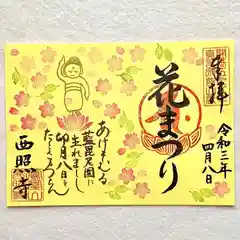 奉拝
花まつり
令和三年
四月八日
あけそむる
藍毘尼園に
生れましし
卯月八日を
たたえまつらむ
西照寺